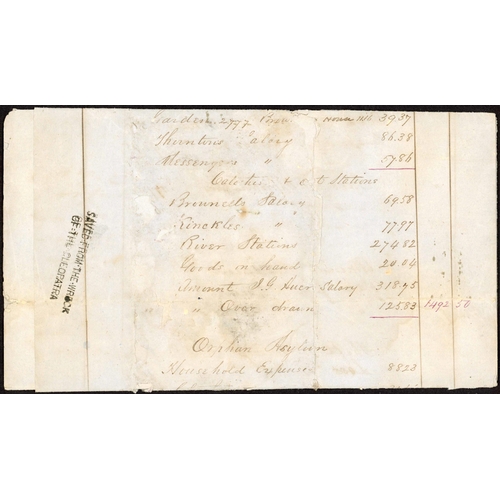 Garden 2797 39.37
Thorntons Salary 86.38
Messengers " 57.86
& c t Stations
Brownells Salary 69.58
Kinckles " 77.97
River Stations 274.82
Goods on hand 20.04
Account J G Auer Salary 318.75
" " Over drawn 125.83 1492 50
Orphan Asylum
Household Expenses 88.23
SAVED FROM THE WRECK
OF THE CLEOPATRA